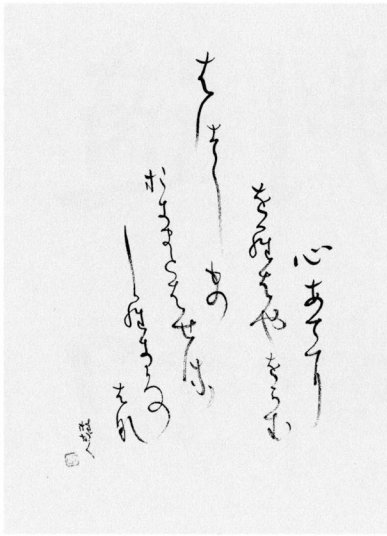 心あてに
をらはやをらむ
はつしもの
おきまとはせる
しらきくのはな